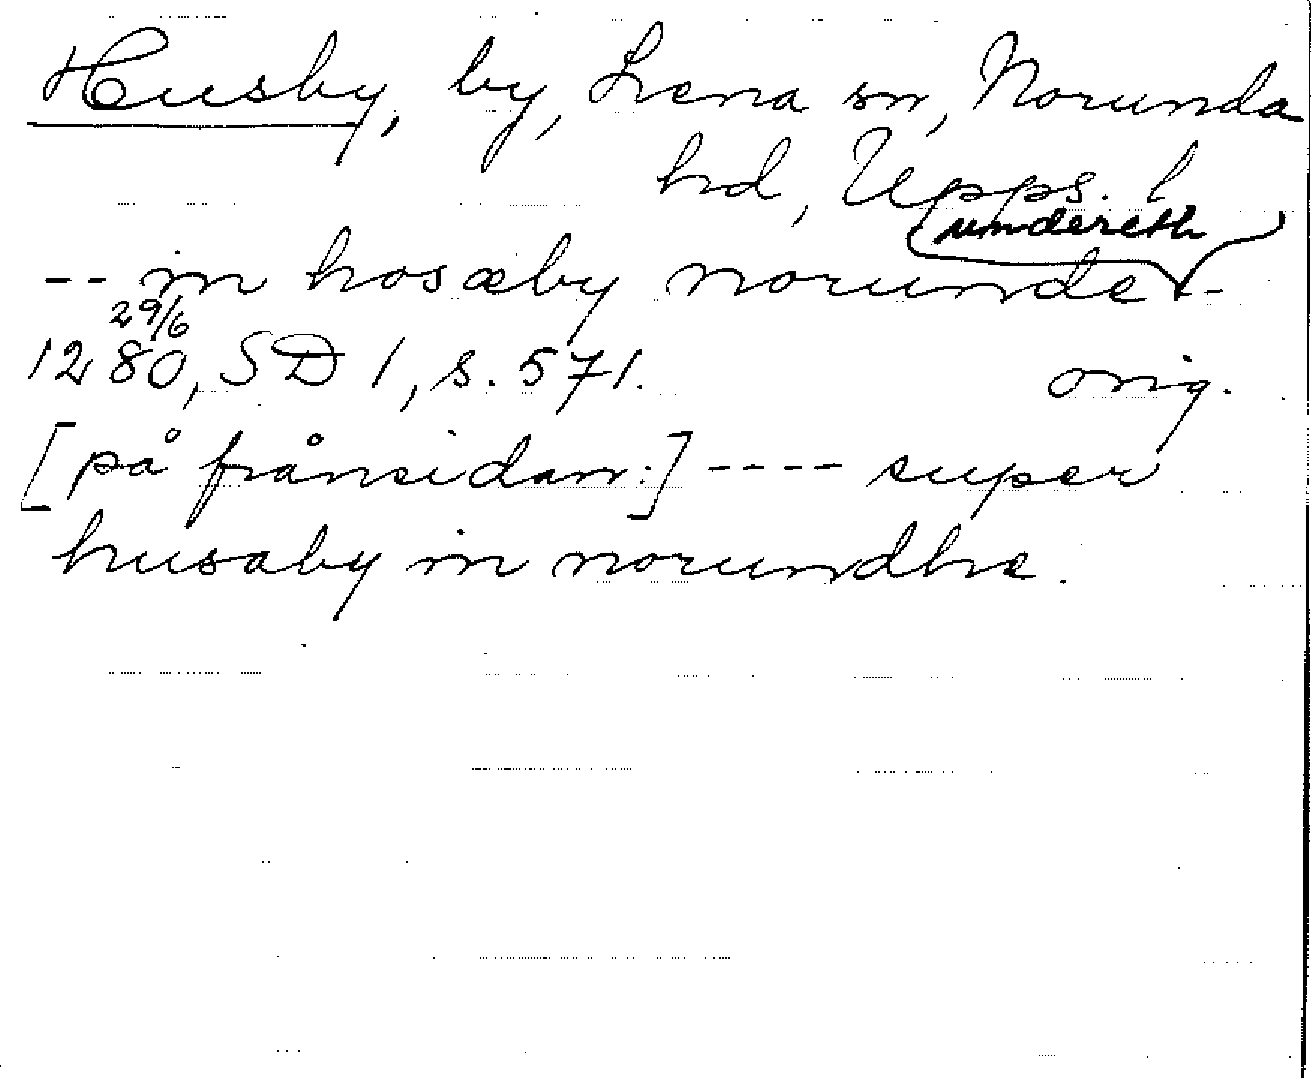 Husby, by, Lena sn, Norunda
hd, Upps. l
undereth
-- in hosæby norunde --
29/6
1280, SD 1, s. 571. orig.
[på frånsidan:] ---- super
husaby in norundhe.